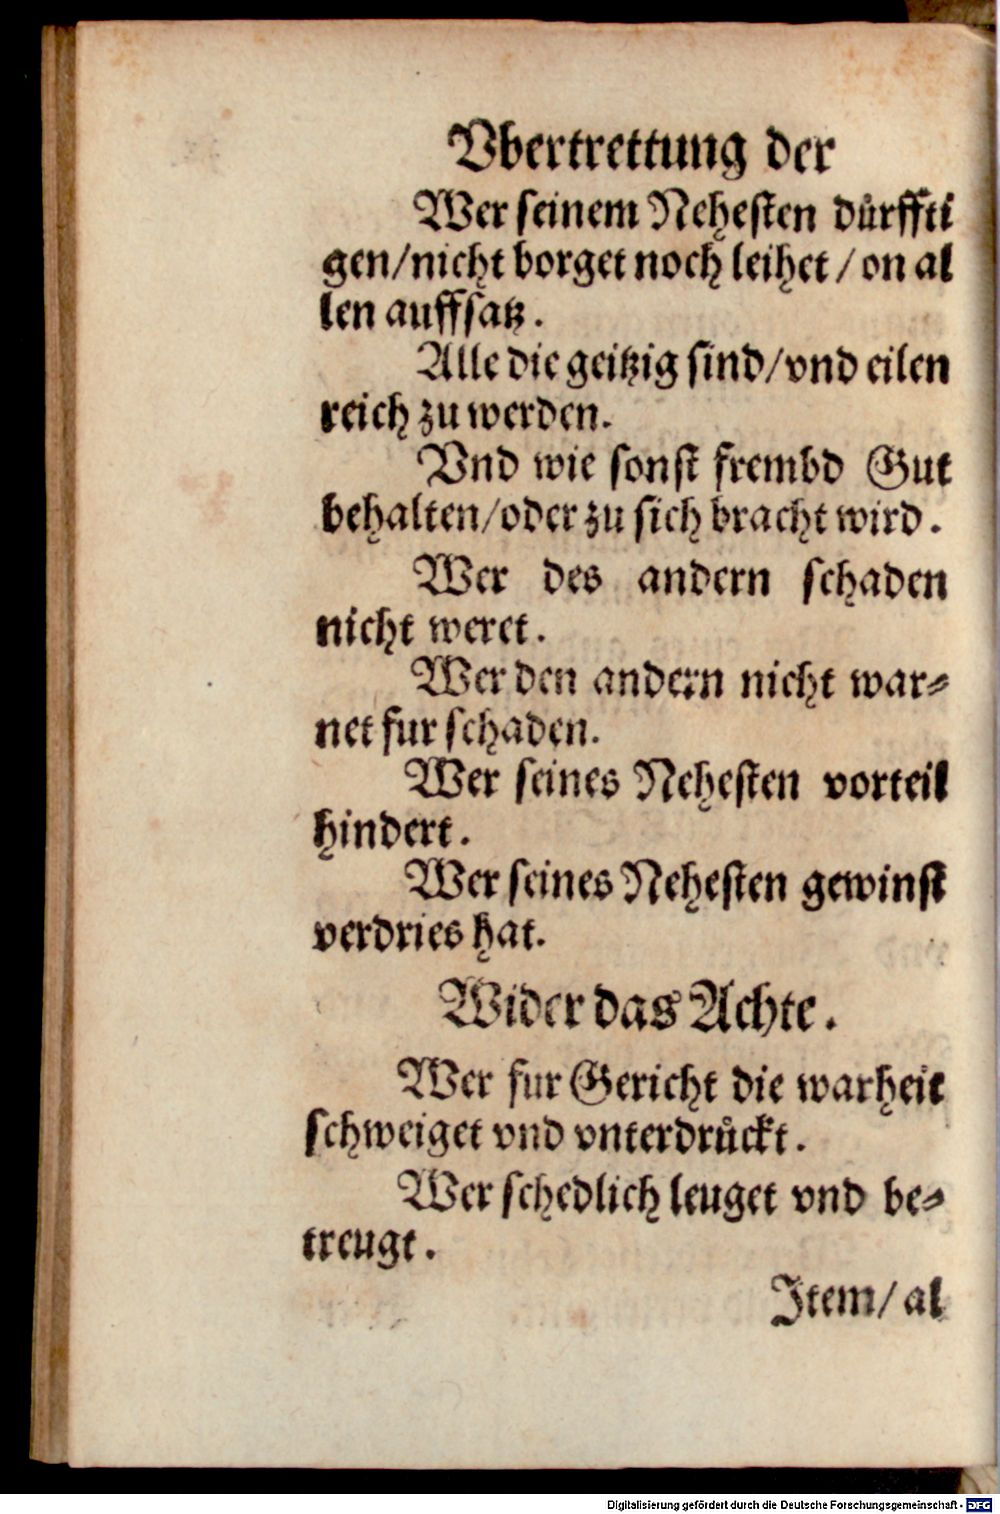 Vbertrettung der
Wer seinem Nehesten duͤrffti
gen/nicht borget noch leihet / on al
len auffsatz.
Alle die geitzig sind/vnd eilen
reich zu werden.
Vnd wie sonst frembd Gut
behalten/oder zu sich bracht wird.
Wer des andern schaden
nicht weret.
Wer den andern nicht war⸗
net fur schaden.
Wer seines Nehesten vorteil
hindert.
Wer seines Nehesten gewinst
verdries hat.
Wider das Achte.
Wer fur Gericht die warheit
schweiget vnd vnterdruͤckt.
Wer schedlich leuget vnd be⸗
treugt.
Item/ al
Digitalisierung gefördert durch die Deutsche Forschungsgemeinschaft - DFG